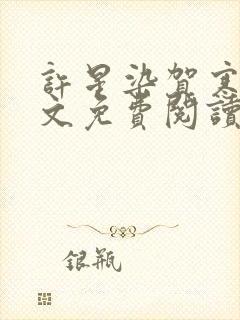 許星染賀寒
文免費閱讀
銀瓶